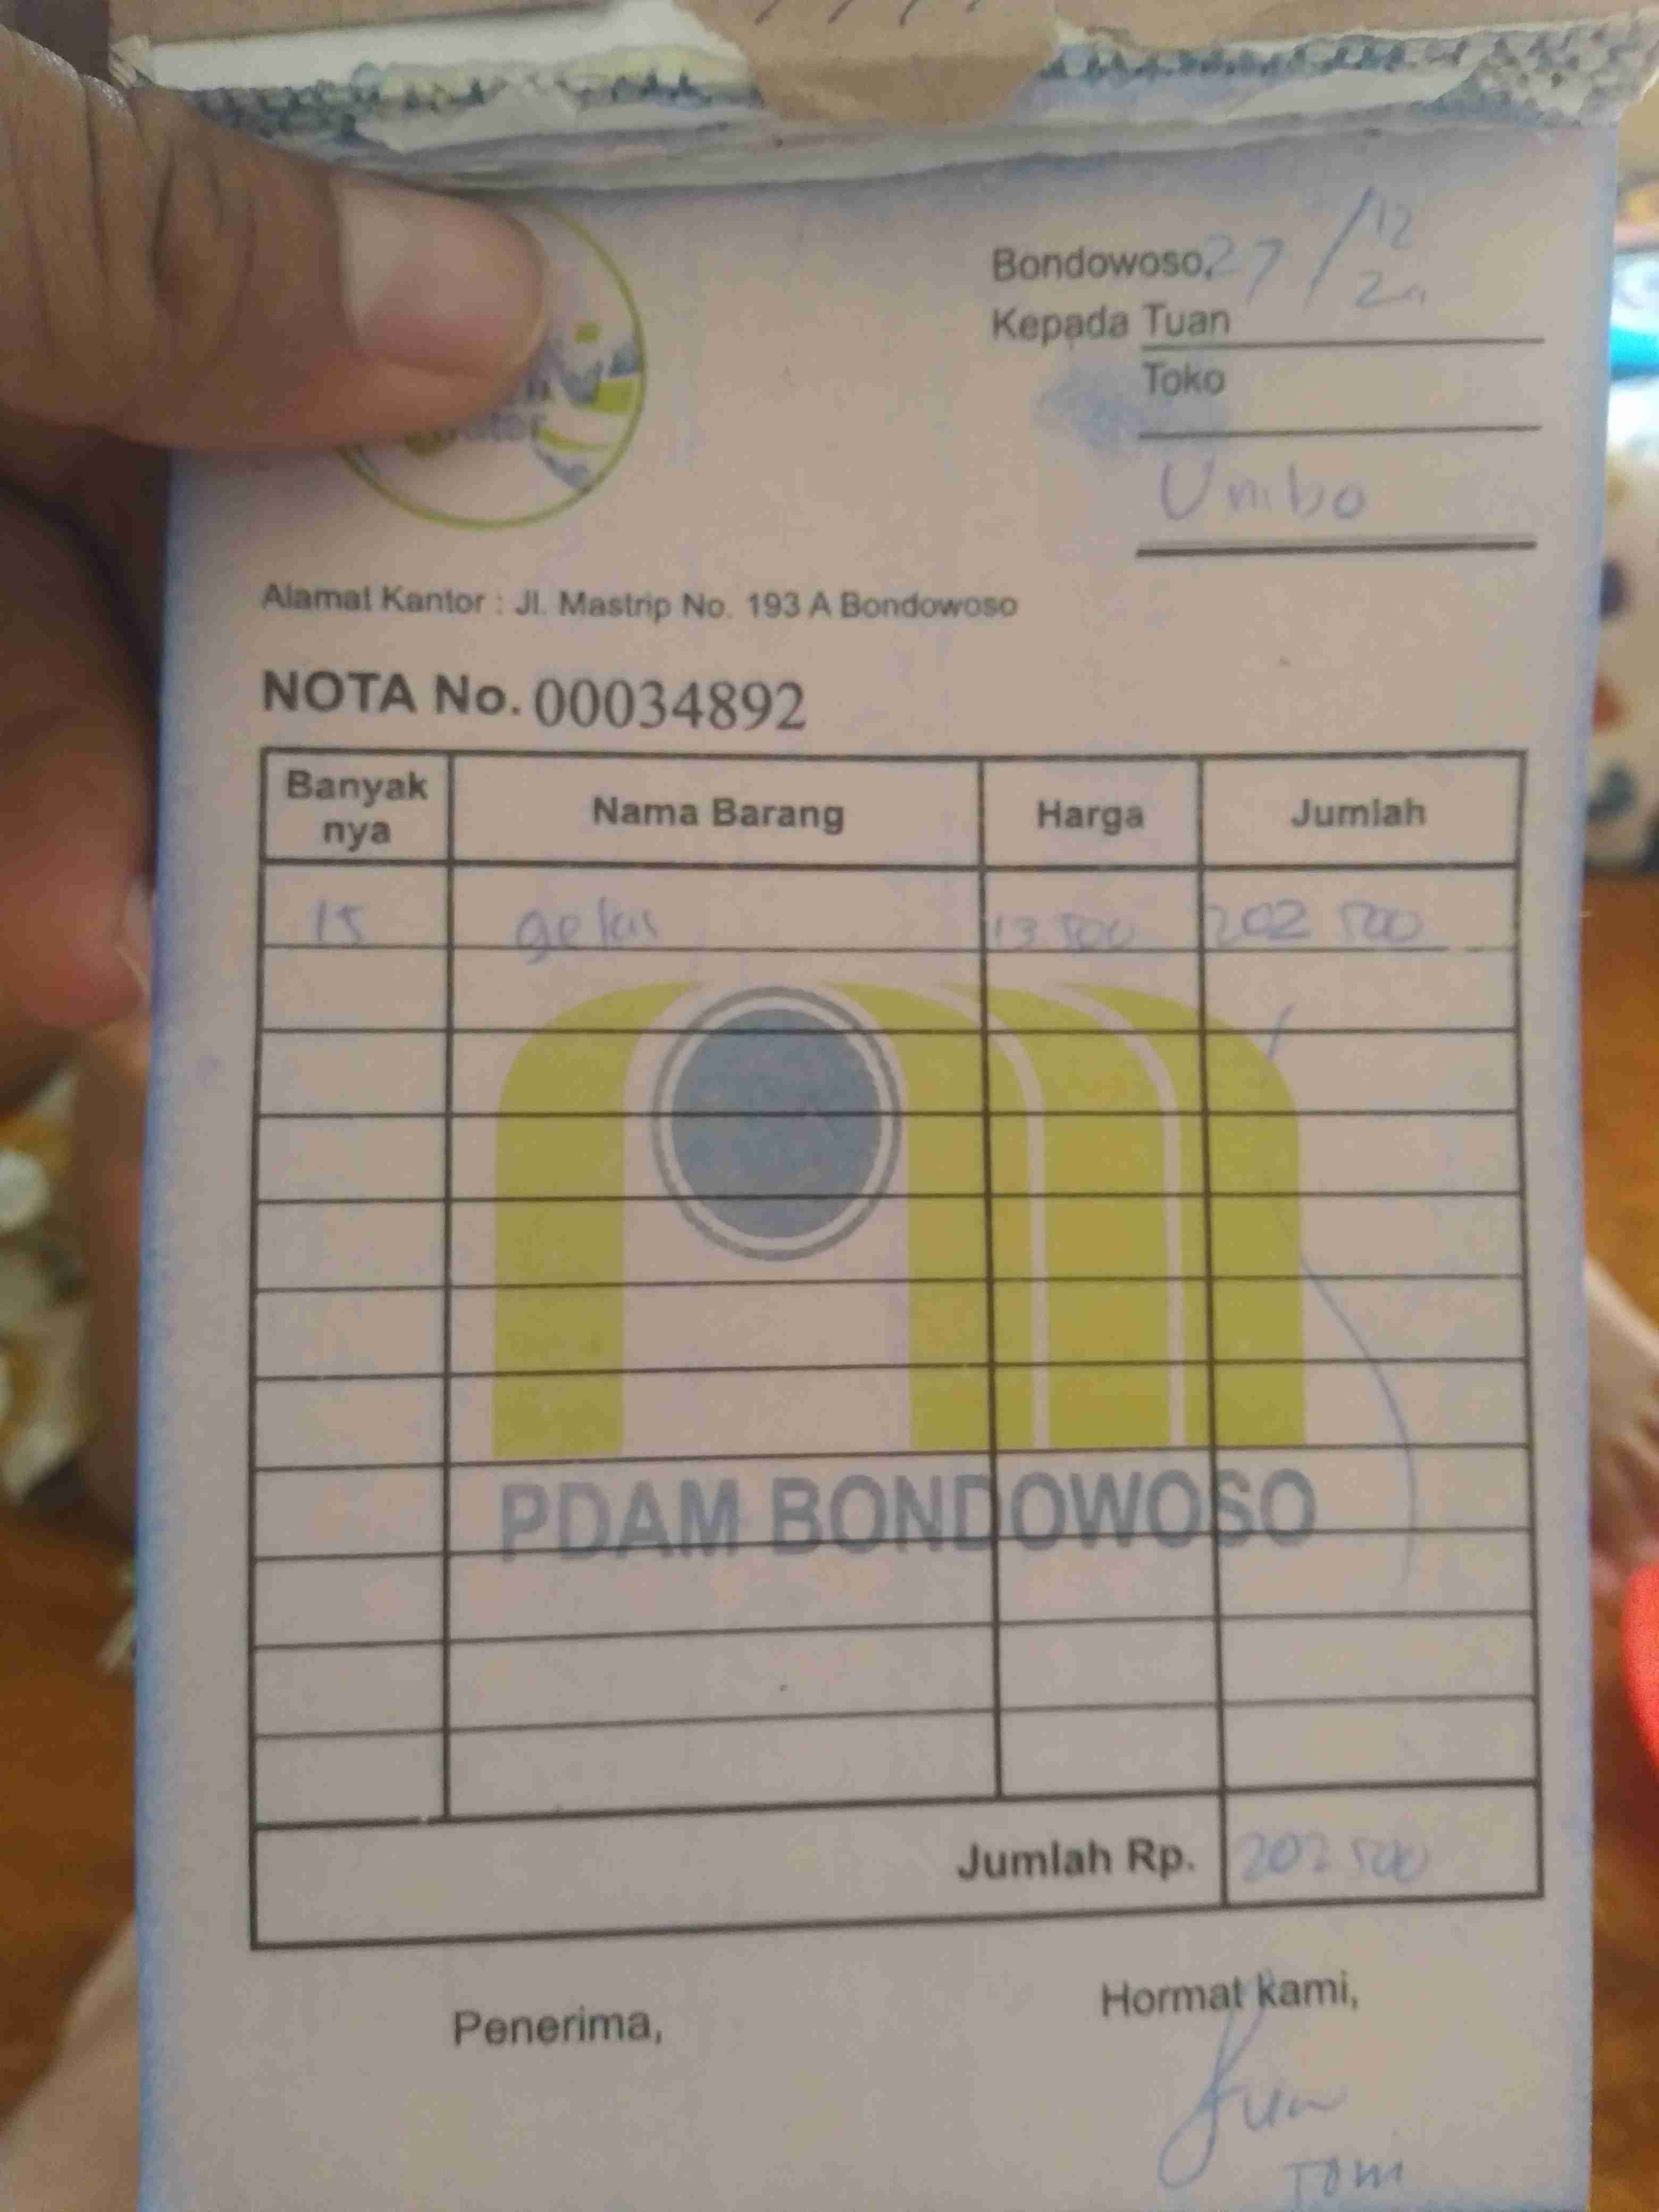 Bondowoso, 27/12
Kepada Tuan
Toko
Unibo
Alamat Kantor : Jl. Mastrip No. 193 A Bondowoso
NOTA No. 00034892
Banyak nya Nama Barang Harga Jumlah
15 gelas 13 500 202 500
PDAM BONDOWOSO
Jumlah Rp. 202 500
Penerima, Hormat kami,
Tom